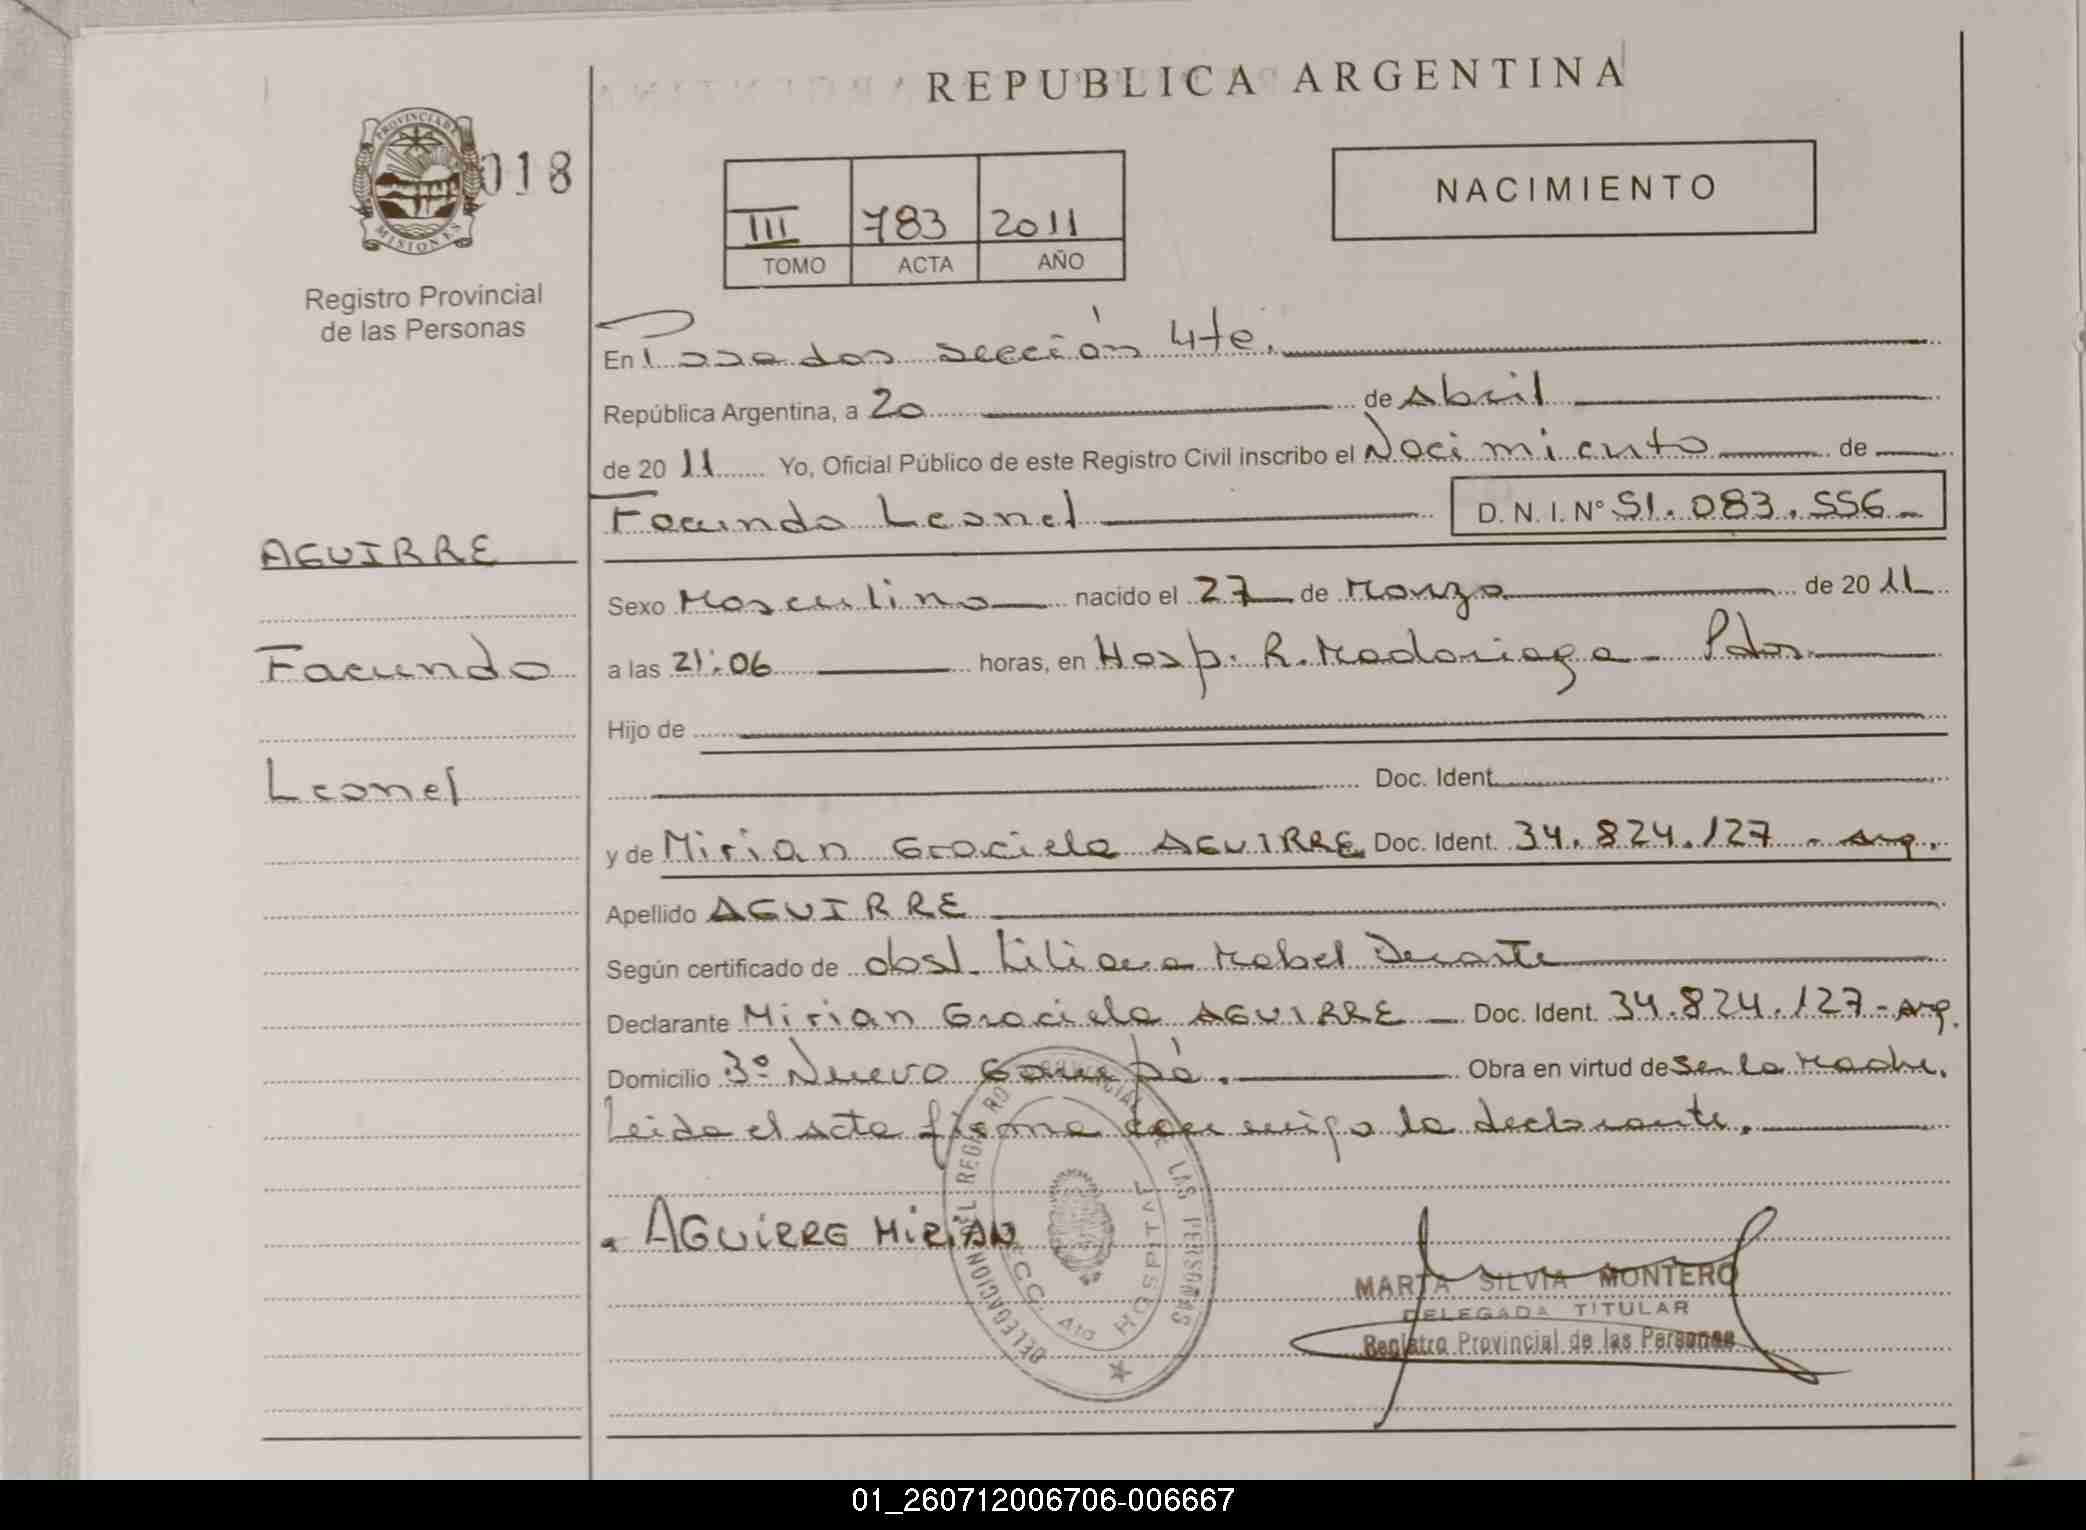 REPUBLICA ARGENTINA
PROVINCIA DE MISIONES
018
Registro Provincial
de las Personas
NACIMIENTO
III 783 2011
TOMO ACTA AÑO
En Posadas sección 4ta.
República Argentina, a 20 de Abril
de 2011 Yo, Oficial Público de este Registro Civil inscribo el Nacimiento de
Facundo Leonel D.N.I.Nº 51.083.556
AGUIRRE
Facundo
Leonel
Sexo Masculino nacido el 27 de Marzo de 2011
a las 21:06 horas, en Hosp. R. Madariaga - Pdas.
Hijo de
Doc. Ident.
y de Mirian Graciela AGUIRRE Doc. Ident. 34.824.127 - Arg.
Apellido AGUIRRE
Según certificado de obst. Liliana Mabel Duarte
Declarante Mirian Graciela AGUIRRE Doc. Ident. 34.824.127 - Arg.
Domicilio 3º Nuevo Garupá. Obra en virtud de ser la Madre.
Leida el acta firma conmigo la declarante.
AGUIRRE MIRIAN
DELEGACION DEL REGISTRO PROVINCIAL DE LAS PERSONAS
HOSPITAL
MARTA SILVIA MONTERO
DELEGADA TITULAR
Registro Provincial de las Personas
01_260712006706-006667